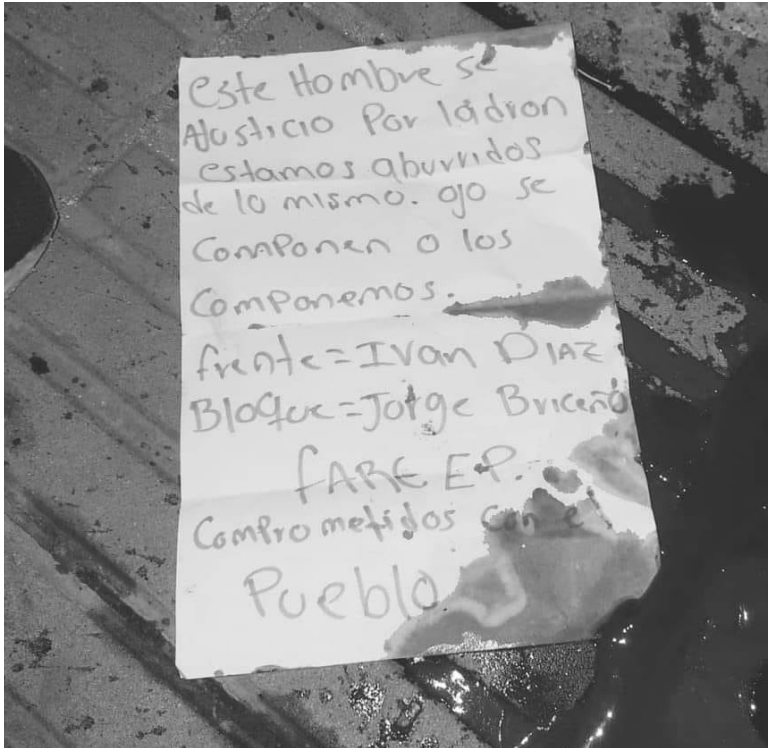 este Hombre se
AJusticio Por ládron
estamos aburridos
de lo mismo. ojo se
componen o los
componemos.
frente=Ivan DIAZ
Bloque=Jorge Briceño
FARC EP.
Comprometidos con e
Pueblo